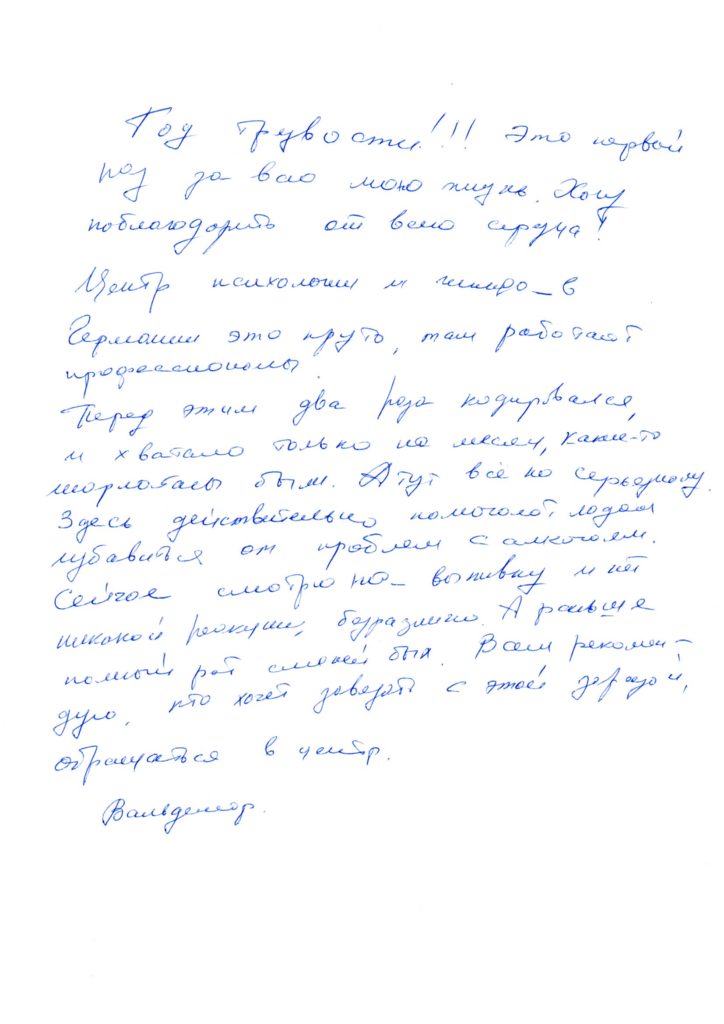 Год трезвости!!! Это первый
раз за всю мою жизнь. Хочу
поблагодарить от всего сердца!
Центр психологии и в
Германии это круто, там работают
профессионалы.
Перед этим два раза кодировался,
и хватало только на месяц, какие-то
шарлотаны были. А тут всё по серьёзному.
Здесь действительно помогают людям
избавиться от проблем с алкоголем.
Сейчас смотрю на выпивку и нет
никакой реакции, безразлично. А раньше
полный рот слюней был. Всем рекомен-
дую, кто хочет завезать с этой заразой,
обращаться в центр.
Вальдемар.